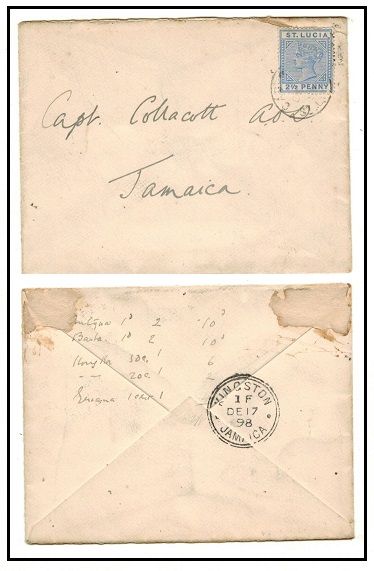 ST. LUCIA
2½ PENNY
Capt. Collacott AOD
Jamaica.
1d 2 10d
Barba. 1d 2 10d
3 De. 1 6
-- 20c 1
1 1
KINGSTON
1 F
DE 17
98
JAMAICA